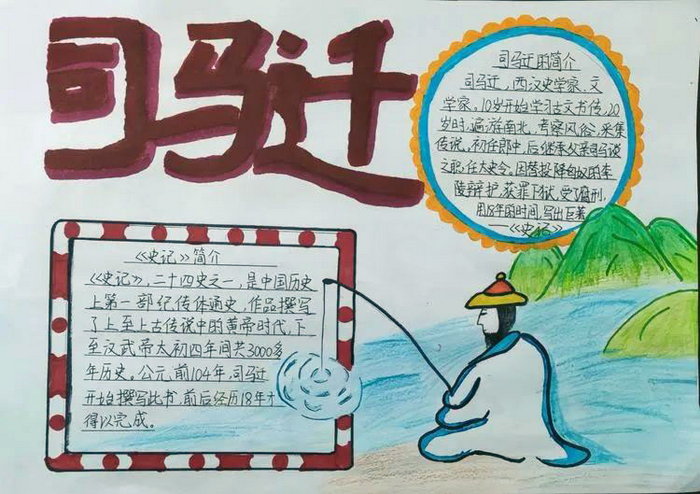 司马迁
司马迁的简介
司马迁，西汉史学家、文
学家。10岁开始学习古文书传，20
岁时，遍游南北，考察风俗，采集
传说，初任郎中，后继承父亲司马谈
之职，任太史令，因替投降匈奴的李
陵辩护，获罪下狱，受了腐刑，
用18年的时间，写出巨著
——《史记》
《史记》简介
《史记》，二十四史之一，是中国历史
上第一部纪传体通史，作品撰写
了上至上古传说中的黄帝时代，下
至汉武帝太初四年间共3000多
年历史。公元前104年，司马迁
开始撰写此书，前后经历18年才
得以完成。